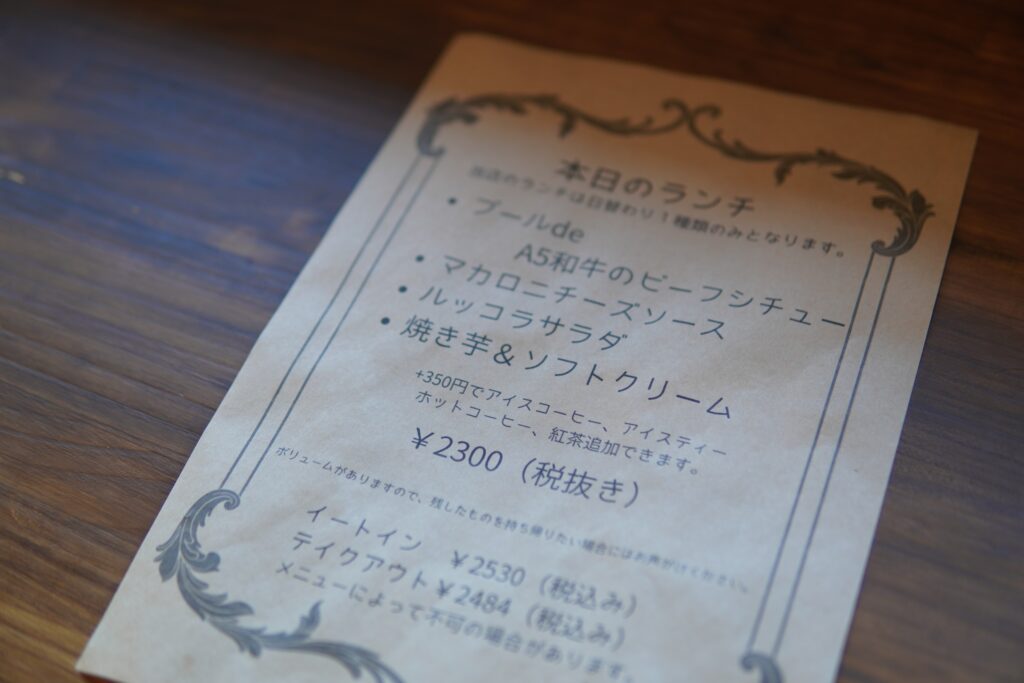 本日のランチ
当店のランチは日替わり１種類のみとなります。
・ブールde
A5和牛のビーフシチュー
・マカロニチーズソース
・ルッコラサラダ
・焼き芋＆ソフトクリーム
+350円でアイスコーヒー、アイスティー
ホットコーヒー、紅茶追加できます。
￥2300（税抜き）
ボリュームがありますので、残したものを持ち帰りたい場合にはお声がけください。
イートイン　￥2530（税込み）
テイクアウト￥2484（税込み）
メニューによって不可の場合があります。